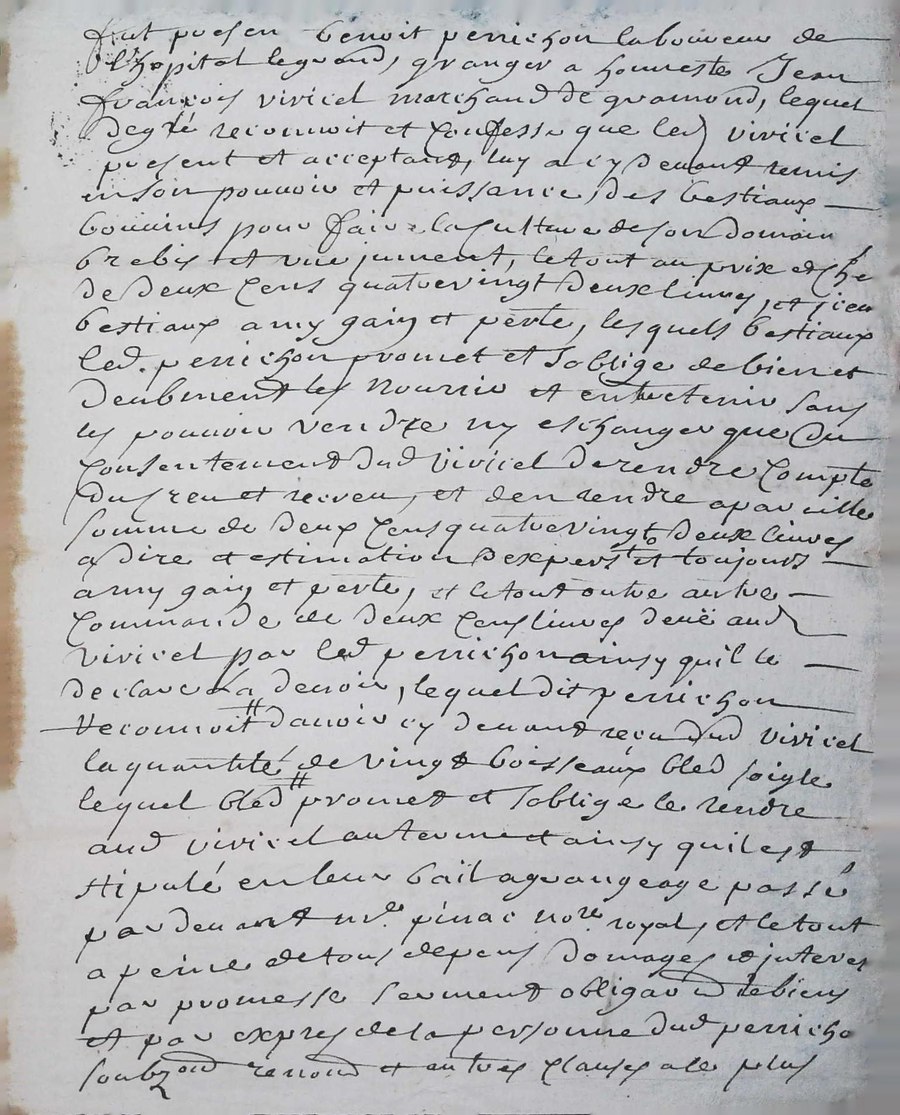 fut presen benoit perrichon laboureur de
l'hopital legrand, granger a honneste Jean
françois vivicel marchand de gramond, lequel
degré reconnoit et confesse que led vivicel
present et acceptant, luy a cy devant remis
en son pouvoir et puissance, des bestiaux
bouvins pour faire la culture de son domaine
brebis et une jument, le tout au prix et chef
de deux cens quatrevingt deux livres, et iceux
bestiaux a my gain et perte, lesquels bestiaux
led. perrichon promet et soblige de bien et
deubment les nourrir et entretenir sans
les pouvoir vendre ny eschanger que du
consentement dud vivicel de rendre compte
du creu et receu, et den rendre apareille
somme de deux cens quatrevingt deux livres
a dire et estimation dexpers et toujours
a my gain et perte, et le tout outre autre
commande de deux cens livres deuë aud
vivicel par led perrichon ainsy quil le
declare la devoir, lequel dit perrichon
reconnoit davoir cy devant receu dud vivicel
la quantité de vingt boisseaux bled soigle
lequel bled promet et soblige le rendre
aud vivicel au terme et ainsy quil est
stipulé en leur bail a grangeage passé
par devant mre pinac nore royal, et le tout
a peine de tous depens domages et interes
par promesse serment obligaon de biens
et par expres de la personne dud perricho
soubzon renond et autres clauses a le plus